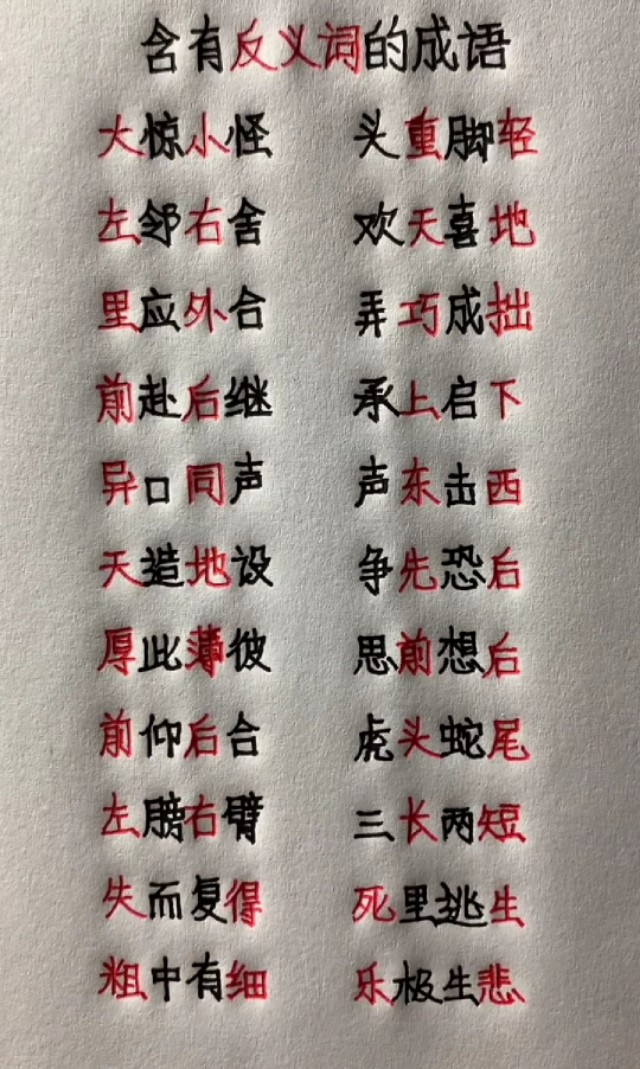 含有反义词的成语
大惊小怪 头重脚轻
左邻右舍 欢天喜地
里应外合 弄巧成拙
前赴后继 承上启下
异口同声 声东击西
天造地设 争先恐后
厚此薄彼 思前想后
前仰后合 虎头蛇尾
左膀右臂 三长两短
失而复得 死里逃生
粗中有细 乐极生悲